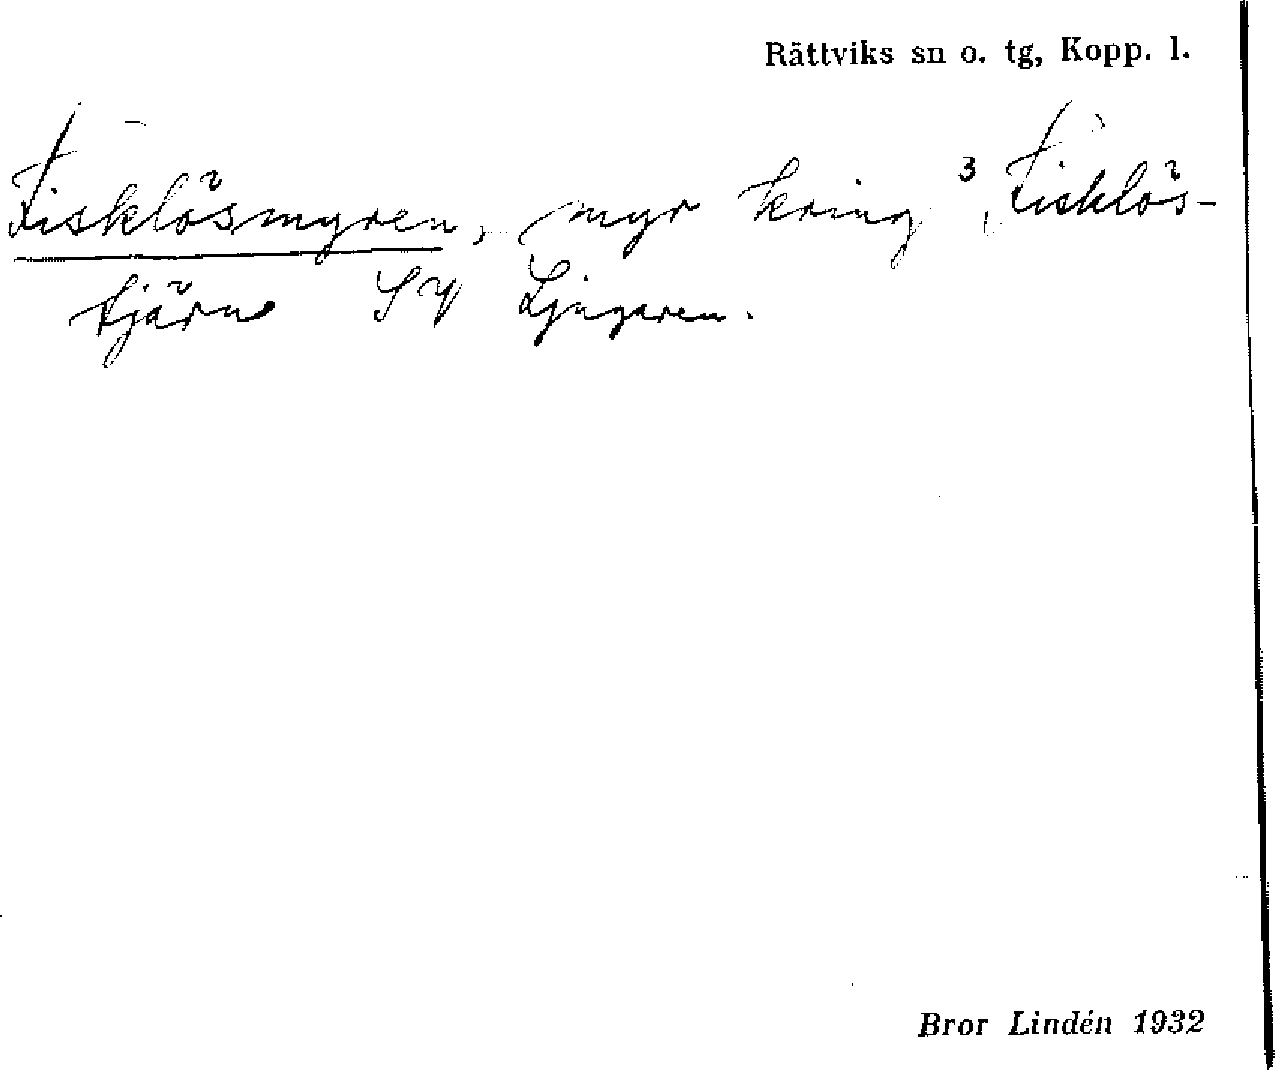 Rättviks sn o. tg, Kopp. l.
Fisklösmyren, myr kring 3 Fisklös-
tjärn SV Ljugaren.
Bror Lindén 1932